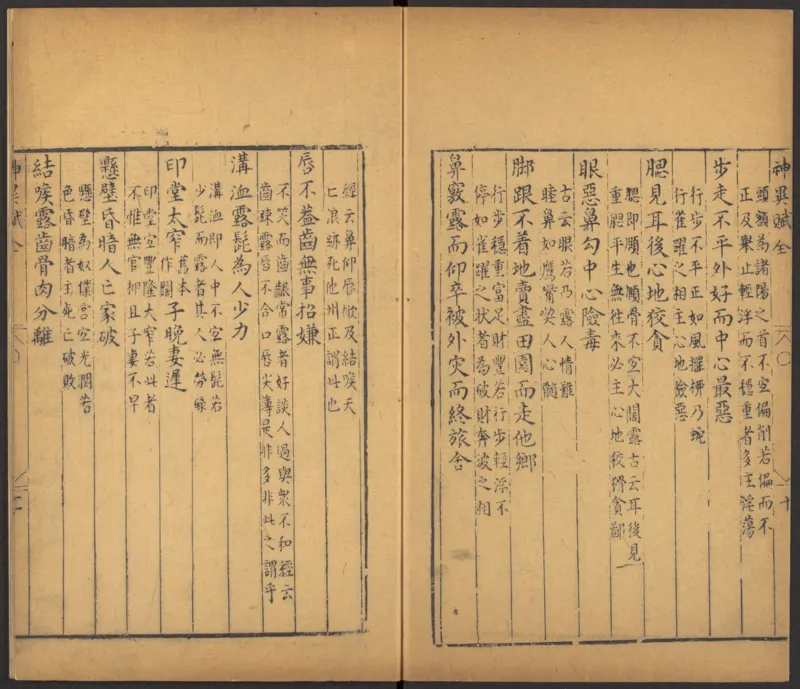 神異賦全
十
頭額為諸陽之首不宜偏削若偏而不
正及舉止輕浮而不穩重者多主淫蕩
步走不平外好而中心最惡
行步不平正如風擺柳乃蛇
行雀躍之相主心地險惡
腮見耳後心地狡貪
腮即頤也頤骨不宜大闊露古云耳後見
腮平生無往來必主心地狡猾貪鄙
眼惡鼻勾中心險毒
古云眼若乃露人情難
睦鼻如鷹觜啄人心髓
脚跟不着地賣盡田園而走他鄉
行步穩重富足財豐若行步輕浮不
停如雀躍之狀者為破財奔波之相
鼻竅露而仰卒被外灾而終旅舍
經云鼻仰唇掀及結喉夭
亡浪跡死他州正謂此也
唇不蓋齒無事招嫌
不笑而齒齦常露者好談人過與衆不和經云
齒疎露唇不合口唇尖薄是非多非此之謂乎
溝洫露髭為人少力
溝洫即人中不宜無髭若
少髭而露者其人必勞碌
印堂太窄舊本作闊子晚妻遲
印堂宜豐隆大窄若此者
不惟無官抑且子妻不早
懸壁昏暗人亡家破
懸壁為奴僕宮宜光潤若
色昏暗者主死亡破敗
結喉露齒骨肉分離
神異賦全